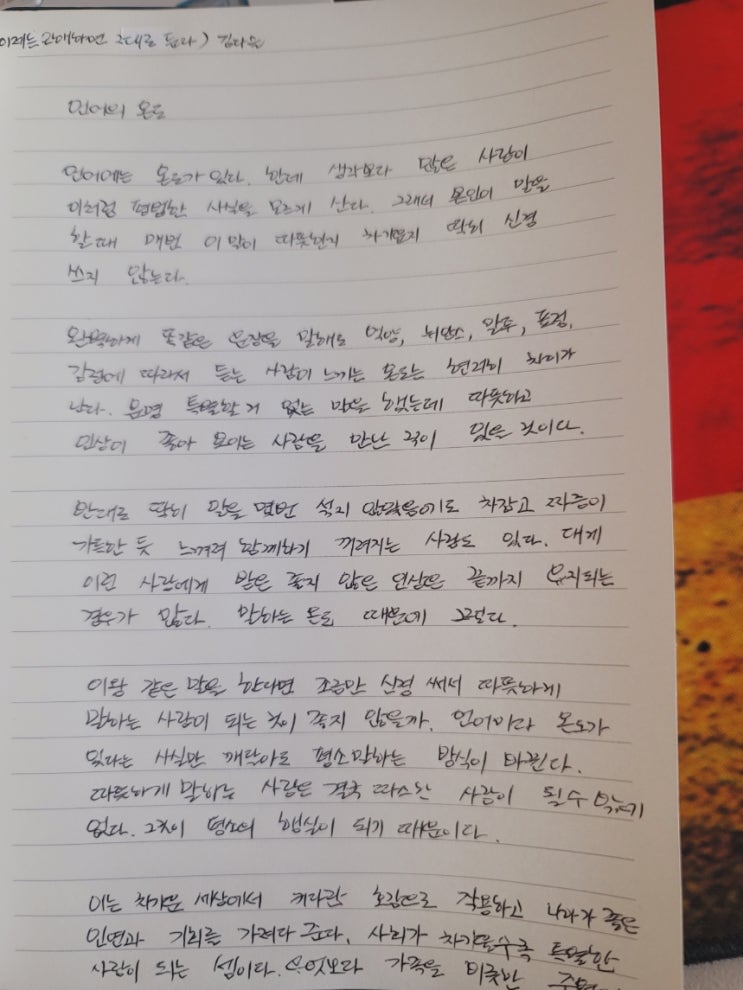 이러는 관매하면 그대로 듣다) 김다은
언어의 온도
언어에는 온도가 있다. 한데 생각보다 많은 사람이
이처럼 평범한 사실을 모르게 산다. 그래서 본인이 말을
할 때 매번 이 말이 따뜻한지 차가운지 딱히 신경
쓰지 않는다.
완벽하게 똑같은 문장을 말해도 억양, 뉘앙스, 말투, 표정,
감정에 따라서 듣는 사람이 느끼는 온도는 현저히 차이가
난다. 분명 특별할 거 없는 말을 했는데 따뜻하고
인상이 좋아 보이는 사람을 만난 적이 있을 것이다.
반대로 딱히 말을 몇번 섞지 않았음에도 차갑고 짜증이
가득한 듯 느껴져 함께하기 꺼려지는 사람도 있다. 대게
이런 사람에게 받은 좋지 않은 인상은 끝까지 유지되는
경우가 많다. 말하는 온도 때문에 그렇다.
이왕 같은 말을 한다면 조금만 신경 써서 따뜻하게
말하는 사람이 되는 것이 좋지 않을까. 언어마다 온도가
있다는 사실만 깨달아도 평소 말하는 방식이 바뀐다.
따뜻하게 말하는 사람은 결국 따스한 사람이 될 수 밖에
없다. 그것이 평소의 행실이 되기 때문이다.
이는 차가운 세상에서 커다란 호감으로 작용하고 나아가 좋은
인연과 기회를 가져다 준다. 사회가 차가울수록 특별한
사람이 되는 셈이다. 무엇보다 가족을 비롯한